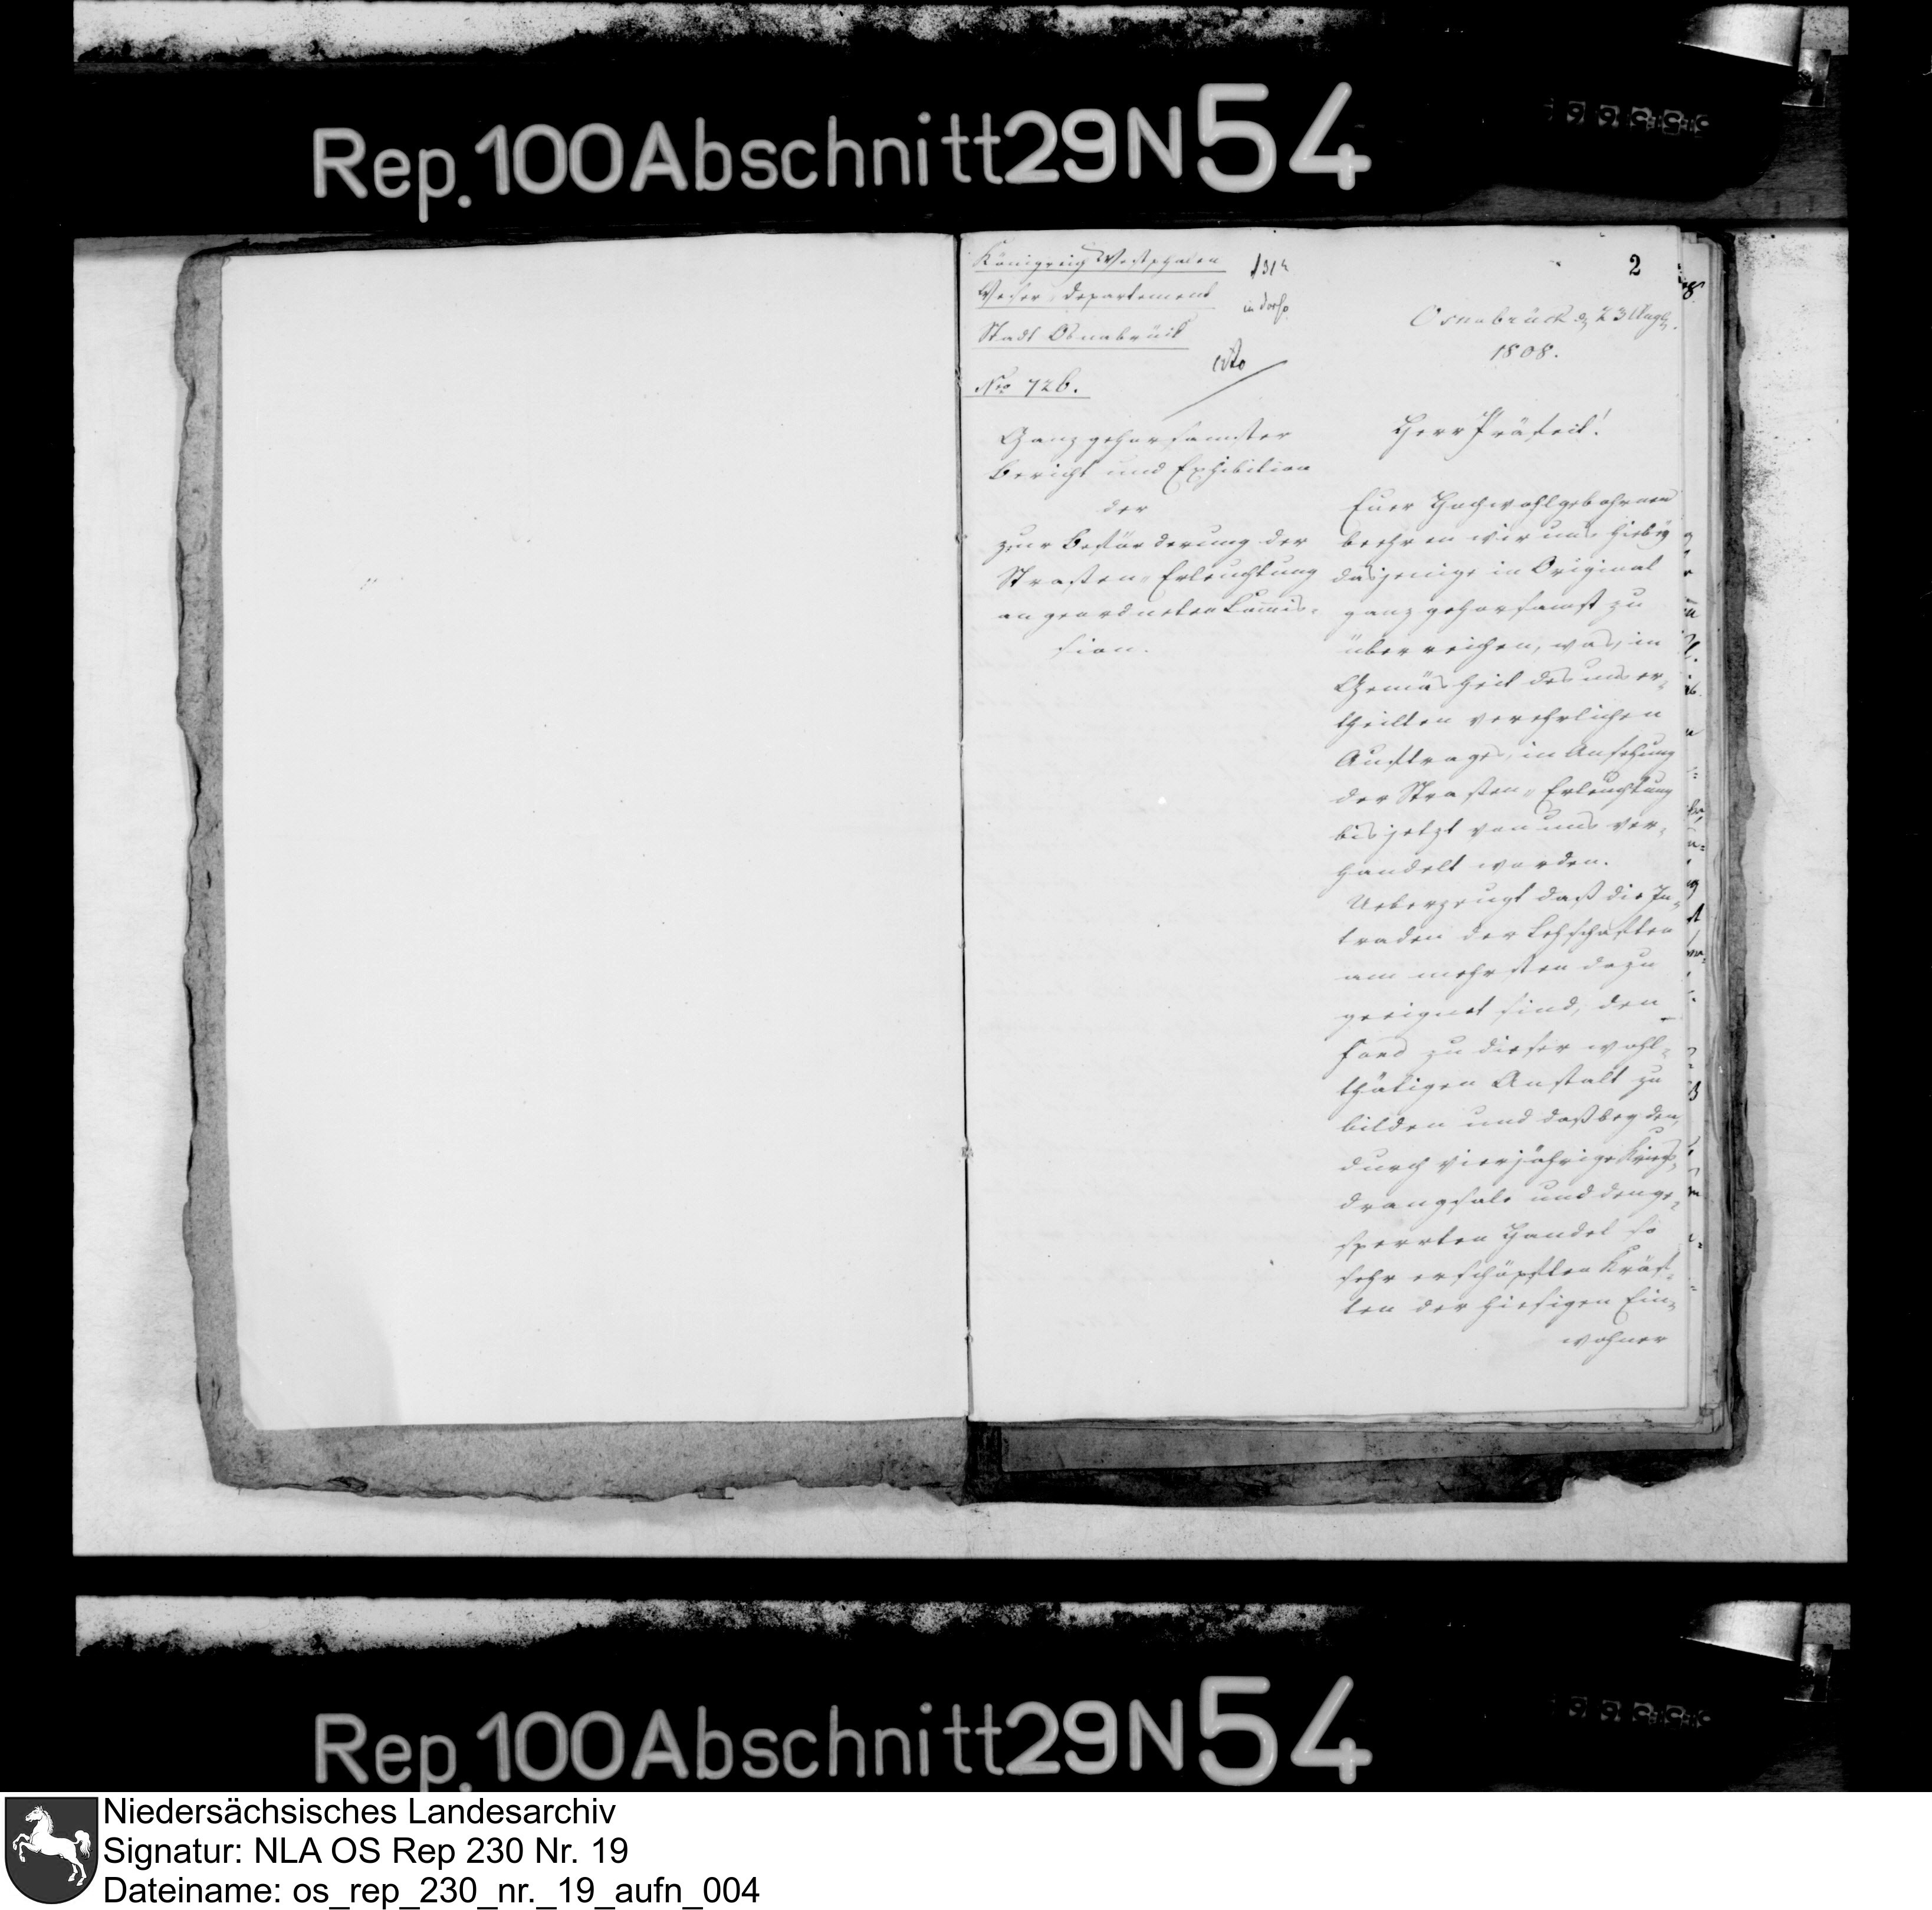 Rep. 100 Abschnitt 29 N 54
2
Königreich Westphalen
Weser-Departement
Stadt Osnabrück
Nro 726.
Osnabrück d 23 Aug
1808.
Ganz gehorsamster
Bericht und Exhibition
der
zur Beförderung der
Straßen-Erleuchtung
angeordneten Commis-
sion.
Herr Präfect!
Euer Hochwohlgebohrnen
beehren wir uns hiebey
dasjenige in Original
ganz gehorsamst zu
überreichen, was, in
Gemäsheit des uns er-
theilten verehrlichen
Auftrages, in Ansehung
der Straßen-Erleuchtung
bis jetzt von uns ver-
handelt worden.
Ueberzeugt daß die In-
traden der Lehschaften
am mehrsten dazu
geeignet sind, den
fond zu dieser wohl-
thätigen Anstalt zu
bilden und daß bey den,
durch vierjährige Kriegs-
drangsale und den ge-
sperrten Handel so
sehr erschöpften Kräf-
ten der hiesigen Ein-
wohner
Rep. 100 Abschnitt 29 N 54
Niedersächsisches Landesarchiv
Signatur: NLA OS Rep 230 Nr. 19
Dateiname: os_rep_230_nr._19_aufn_004